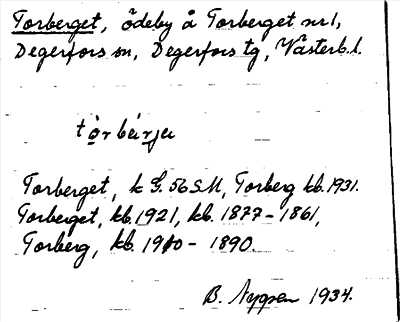 Torberget, ödeby å Torberget nr 1,
Degerfors sn, Degerfors tg, Västerb. l.
tọ̀rbærje
Torberget, k G. 56 SM, Torberg kb. 1931.
Torberget, kb. 1921, kb. 1877-1861,
Torberg, kb. 1910-1890.
B. 1934.